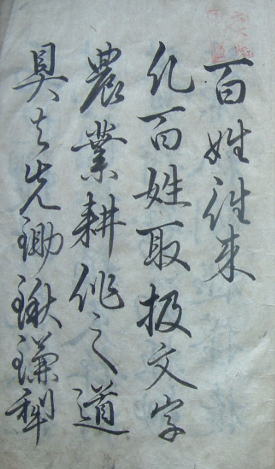 百姓往来
凡百姓取扱文字
農業耕作之道
具者先鋤鍬鎌犁